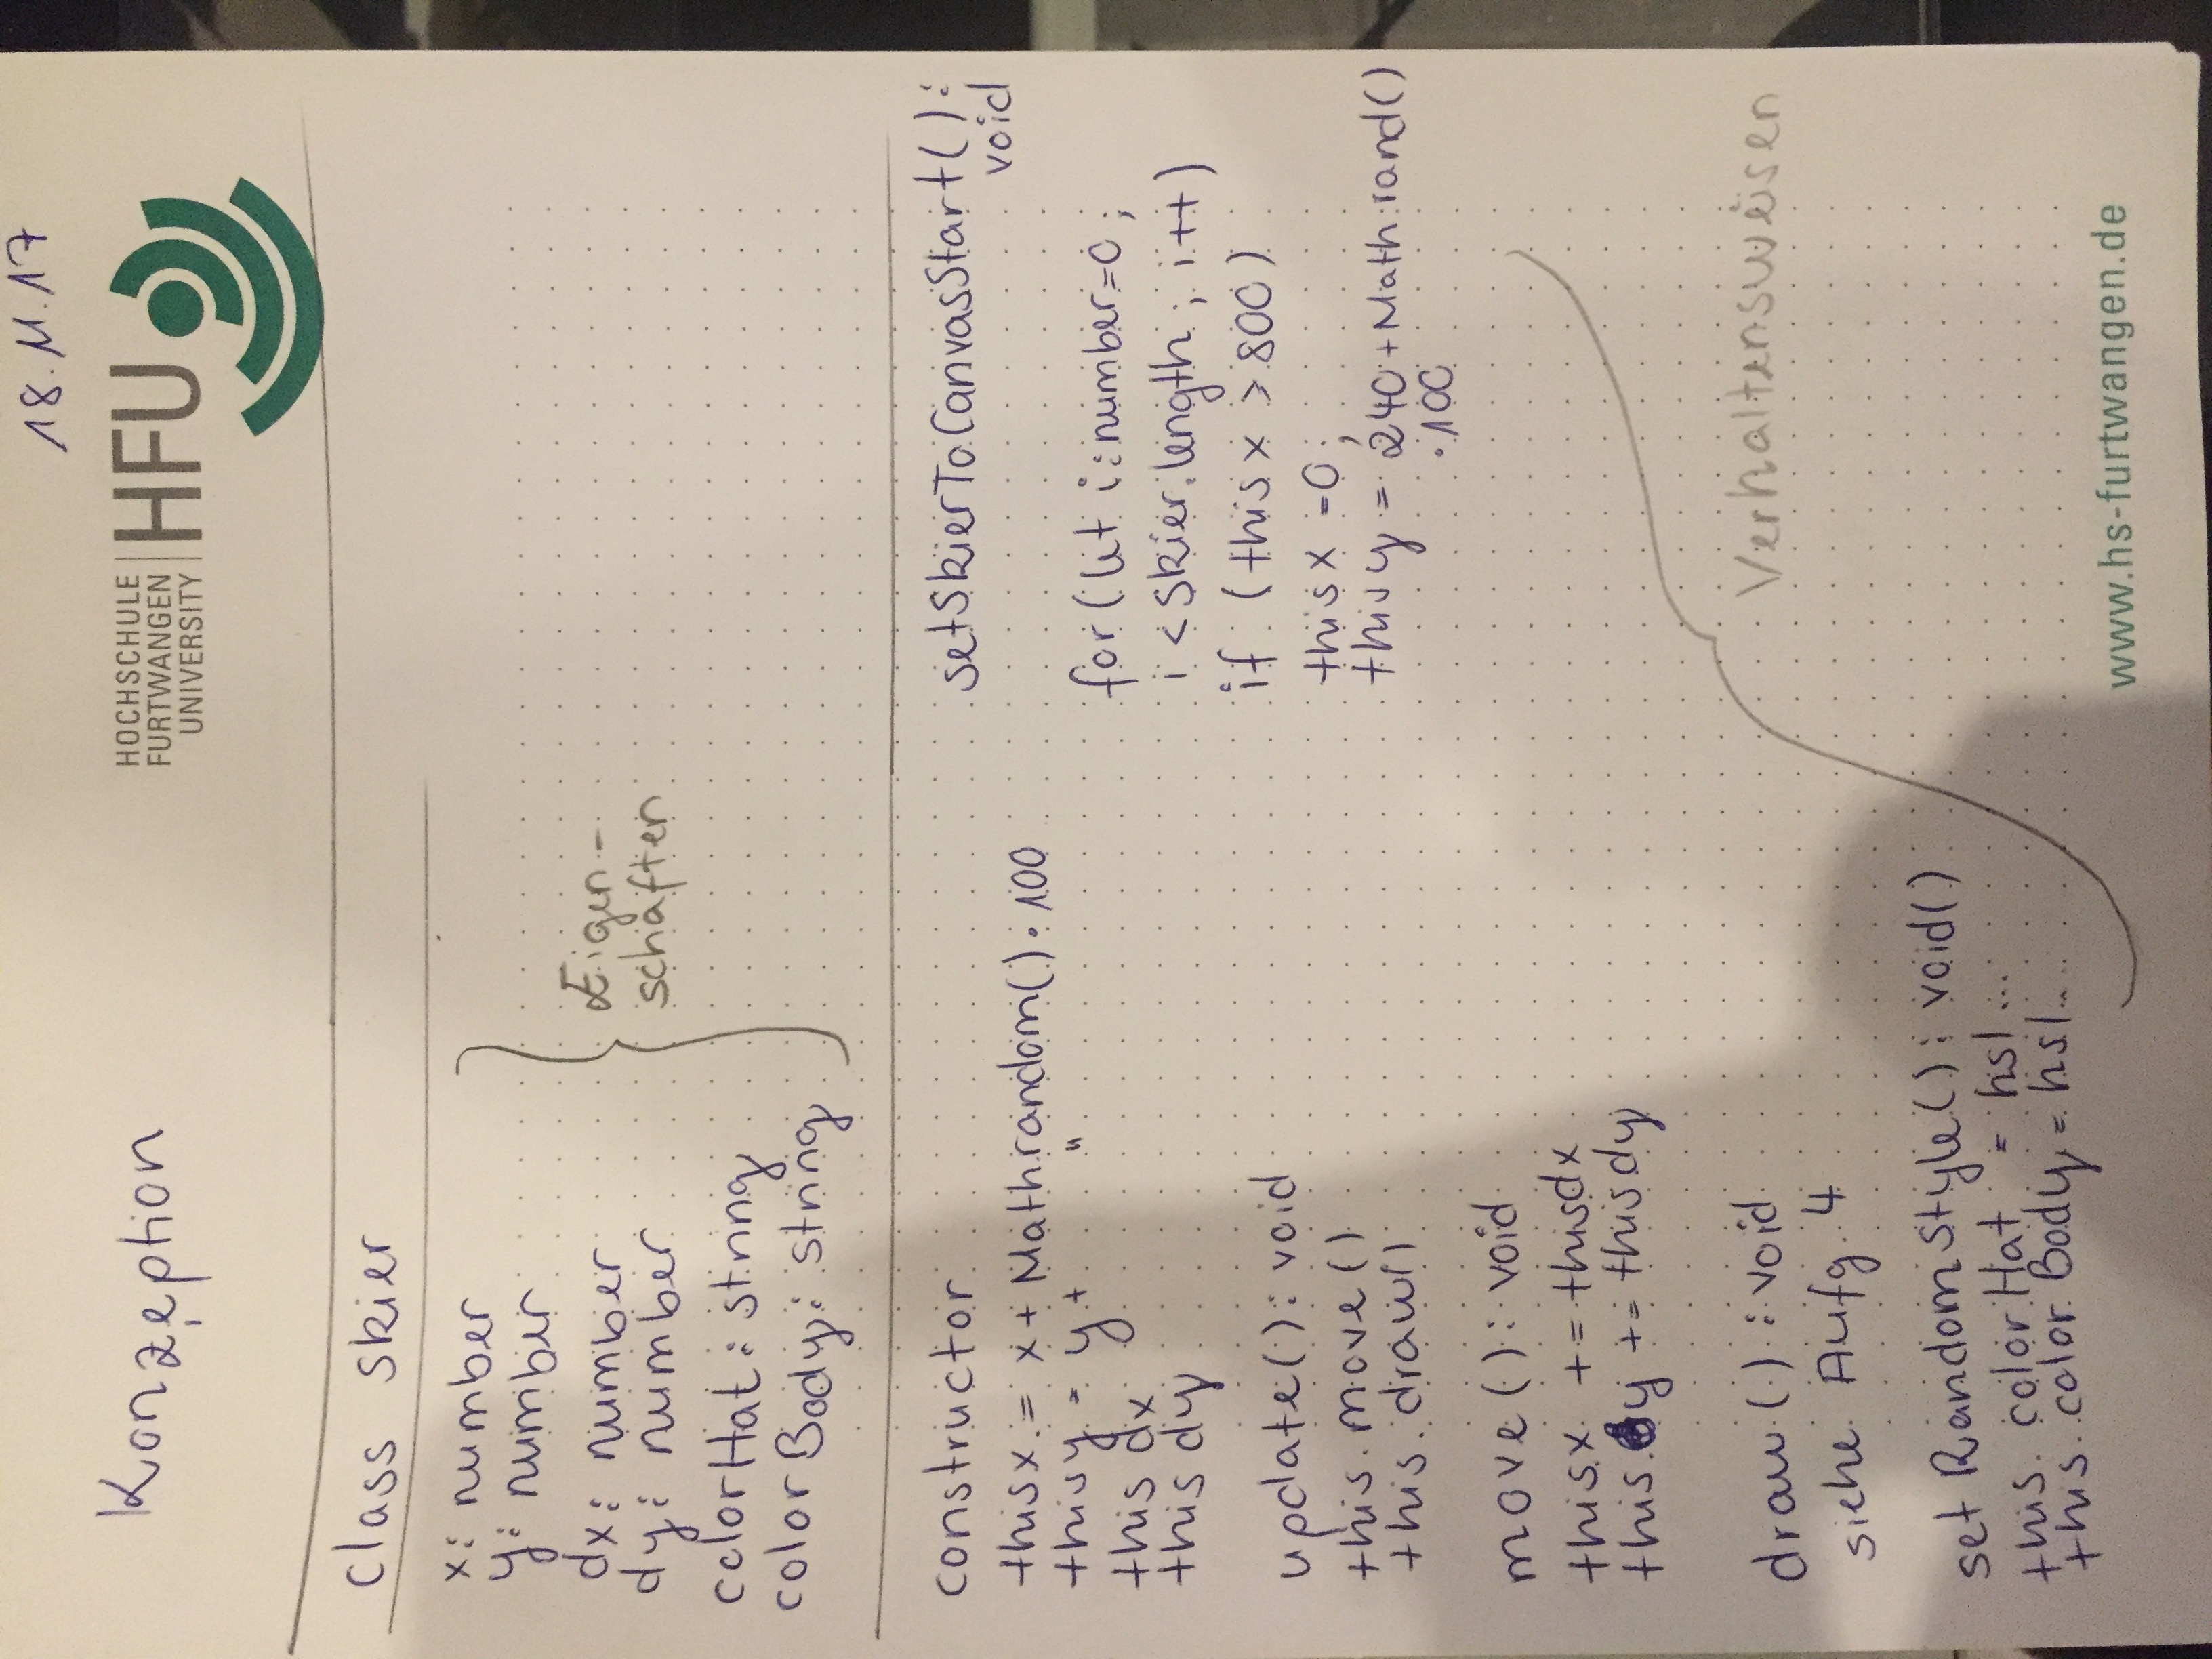 18.11.17
Konzeption
HOCHSCHULE
FURTWANGEN
UNIVERSITY
HFU
class skier
x: number
y: number
dx: number
dy: number
colorHat: string
colorBody: string
Eigen-
schaften
constructor
this x = x + Math random() · 100
this y = y + "
this dx
this dy
update(): void
this. move()
this. draw()
move(): void
this x += this dx
this. y += this dy
draw(): void
siehe Aufg. 4
set RandomStyle(): void()
this. colorHat = hsl...
this. color Body = hsl...
setSkierToCanvasStart():
void
for (let i: number=0;
i < skier.length; i++)
if (this x > 800)
this x = 0;
this y = 240 + Math rand()
· 100
Verhaltensweisen
www.hs-furtwangen.de